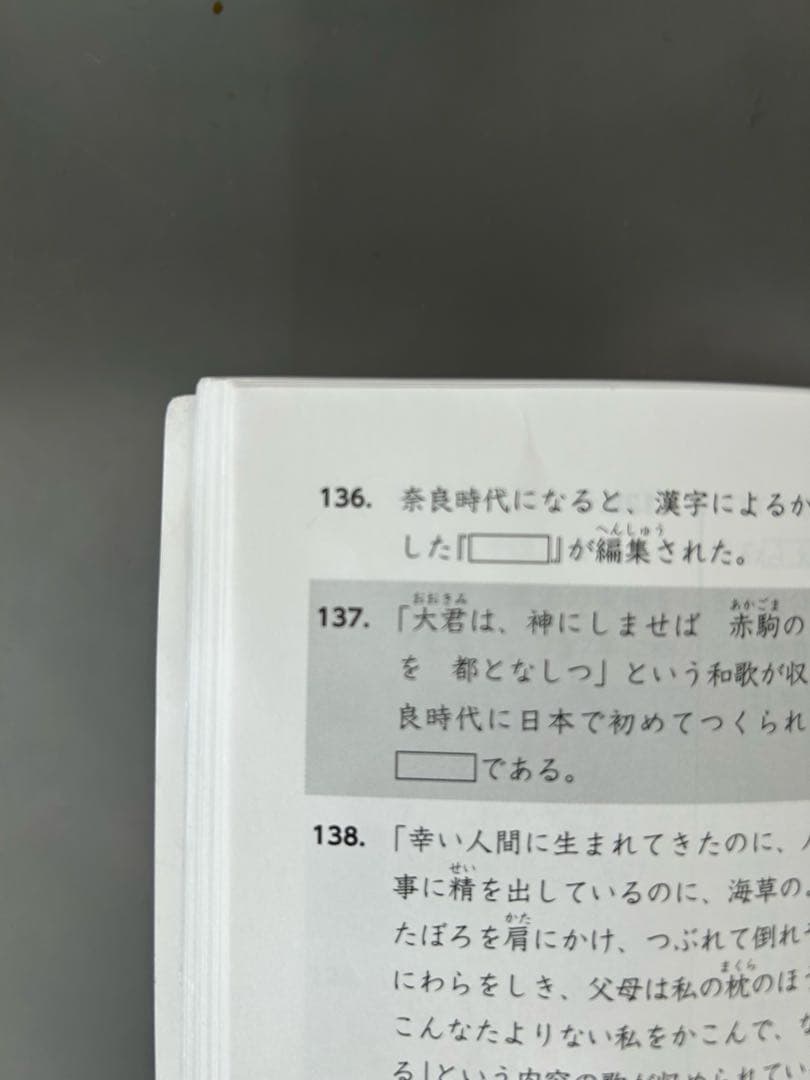 136. 奈良時代になると、漢字によるか
へんしゅう
した『　　』が編集された。
おおきみ　あかごま
137. 「大君は、神にしませば　赤駒の
を　都となしつ」という和歌が収
良時代に日本で初めてつくられ
である。
138. 「幸い人間に生まれてきたのに、
せい
事に精を出しているのに、海草の
かた
たぼろを肩にかけ、つぶれて倒れ
まくら
にわらをしき、父母は私の枕のほ
こんなたよりない私をかこんで、
る」という内容の歌が収められてい